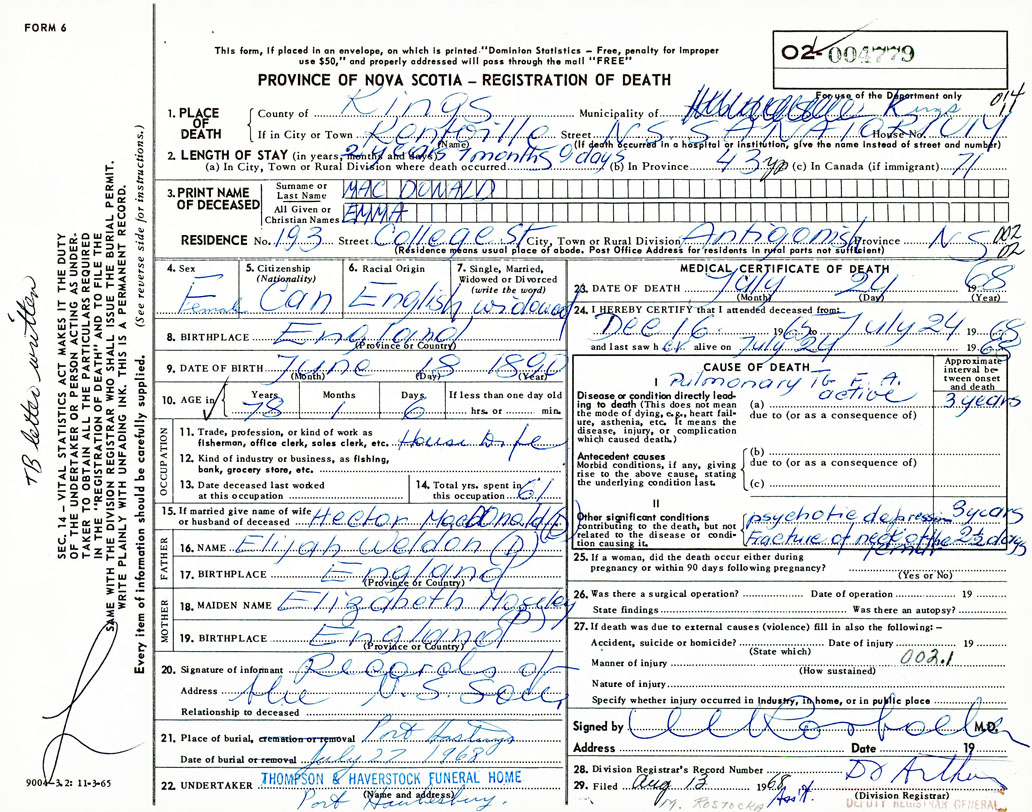 FORM 6
This form, if placed in an envelope, on which is printed "Dominion Statistics – Free, penalty for improper
use $50," and properly addressed will pass through the mail "FREE"
PROVINCE OF NOVA SCOTIA – REGISTRATION OF DEATH
02-004779
For use of the Department only
014
1. PLACE OF DEATH
County of Kings Municipality of Kings
If in City or Town Kentville Street N.S. SANATORIUM House No.
(Name) (If death occurred in a hospital or institution, give the name instead of street and number)
2. LENGTH OF STAY (in years, months and days) 2 years 7 months 9 days
(a) In City, Town or Rural Division where death occurred (b) In Province 43 yr (c) In Canada (if immigrant) 71
3. PRINT NAME OF DECEASED
Surname or Last Name MAC DONALD
All Given or Christian Names EMMA
RESIDENCE No. 193 Street College St City, Town or Rural Division Antigonish Province N S
002
02
(Residence means usual place of abode. Post Office Address for residents in rural parts not sufficient)
4. Sex Female
5. Citizenship (Nationality) Can
6. Racial Origin English
7. Single, Married, Widowed or Divorced (write the word) widowed
8. BIRTHPLACE England
(Province or Country)
9. DATE OF BIRTH June 18 1890
(Month) (Day) (Year)
10. AGE in Years 78 Months 1 Days 6 If less than one day old hrs. or min.
OCCUPATION
11. Trade, profession, or kind of work as fisherman, office clerk, sales clerk, etc. House Wife
12. Kind of industry or business, as fishing, bank, grocery store, etc.
13. Date deceased last worked at this occupation
14. Total yrs. spent in this occupation 61
15. If married give name of wife or husband of deceased Hector MacDonald (D)
FATHER
16. NAME Elijah Weldon (D)
17. BIRTHPLACE England
(Province or Country)
MOTHER
18. MAIDEN NAME Elizabeth Moseley (D)
19. BIRTHPLACE England
(Province or Country)
20. Signature of informant Records of
Address the N.S. San,
Relationship to deceased
21. Place of burial, cremation or removal Port Hastings
Date of burial or removal July 27 1968
22. UNDERTAKER THOMPSON & HAVERSTOCK FUNERAL HOME
(Name and address)
Port Hawkesbury.
MEDICAL CERTIFICATE OF DEATH
23. DATE OF DEATH July 24 1968
(Month) (Day) (Year)
24. I HEREBY CERTIFY that I attended deceased from:
Dec 16 1965 to July 24 1968
and last saw her alive on July 24 1968
CAUSE OF DEATH
Approximate interval between onset and death
I
Pulmonary Tb F. A.
active
Disease or condition directly leading to death (This does not mean the mode of dying, e.g., heart failure, asthenia, etc. It means the disease, injury, or complication which caused death.)
(a) 3 years
due to (or as a consequence of)
Antecedent causes
Morbid conditions, if any, giving rise to the above cause, stating the underlying condition last.
(b)
due to (or as a consequence of)
(c)
II
Other significant conditions contributing to the death, but not related to the disease or condition causing it.
psychotic depression 3 years
fracture of neck of the femur 23 days
25. If a woman, did the death occur either during
pregnancy or within 90 days following pregnancy?
(Yes or No)
26. Was there a surgical operation? Date of operation 19
State findings Was there an autopsy?
27. If death was due to external causes (violence) fill in also the following: –
Accident, suicide or homicide? Date of injury 19
(State which)
Manner of injury 002.1
(How sustained)
Nature of injury
Specify whether injury occurred in industry, in home, or in public place
Signed by M.D.
Address Date 19
28. Division Registrar's Record Number
29. Filed Aug 13 1968
(Division Registrar)
Ass't.
M. ROSTOCKA
DEPUTY REGISTRAR GENERAL
SEC. 14 – VITAL STATISTICS ACT MAKES IT THE DUTY
OF THE UNDERTAKER OR PERSON ACTING AS UNDER-
TAKER TO OBTAIN ALL THE PARTICULARS REQUIRED
IN THE "REGISTRATION OF DEATH" AND TO FILE THE
SAME WITH THE DIVISION REGISTRAR WHO SHALL ISSUE THE BURIAL PERMIT.
WRITE PLAINLY WITH UNFADING INK. THIS IS A PERMANENT RECORD.
Every item of information should be carefully supplied. (See reverse side for instructions.)
TB letter written
9004-3.2: 11-3-65